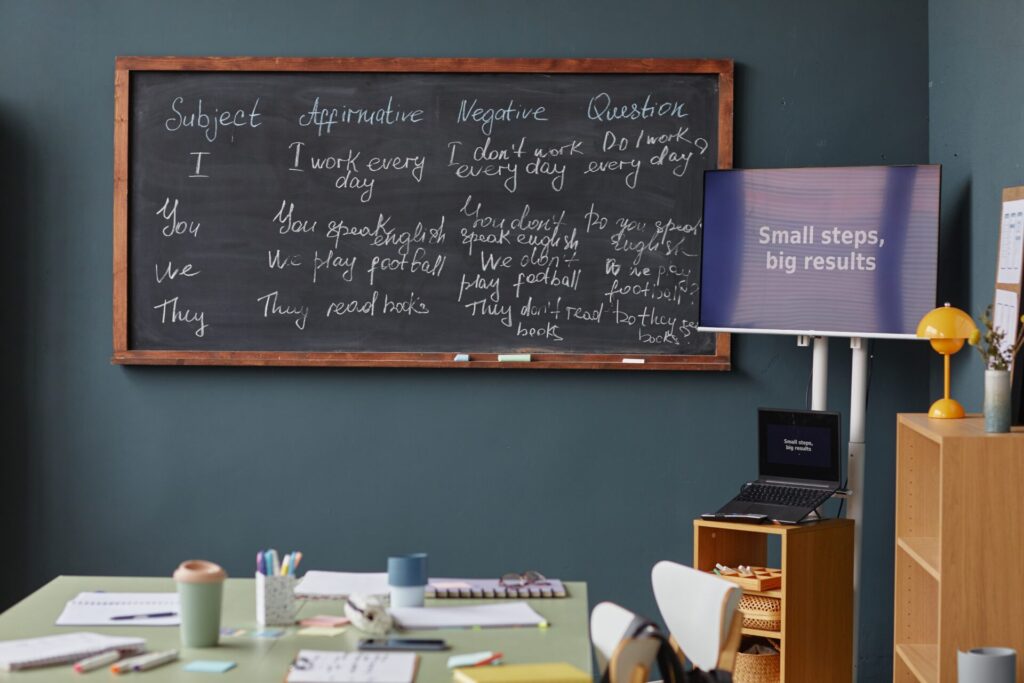 Subject Affirmative Negative Question
I I work every day I don't work every day Do I work every day?
You You speak english You don't speak english Do you speak english
We We play football We don't play football Do we play football?
They They read books They don't read books Do they books
Small steps,
big results
Small steps,
big results